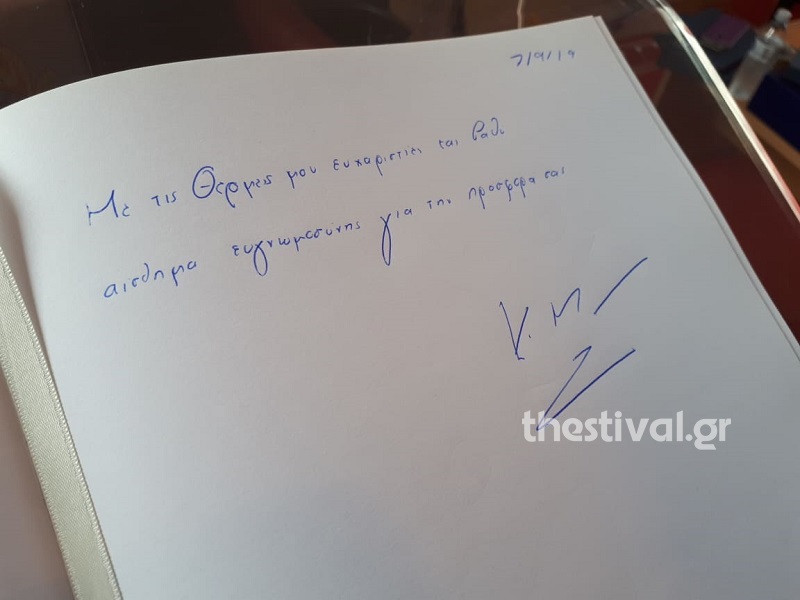 7/9/19
Με τις Θερμες μου ευχαριστιες και βαθυ
αισθημα ευγνωμοσυνης για την προσφορα σας
Κ. Μ
thestival.gr